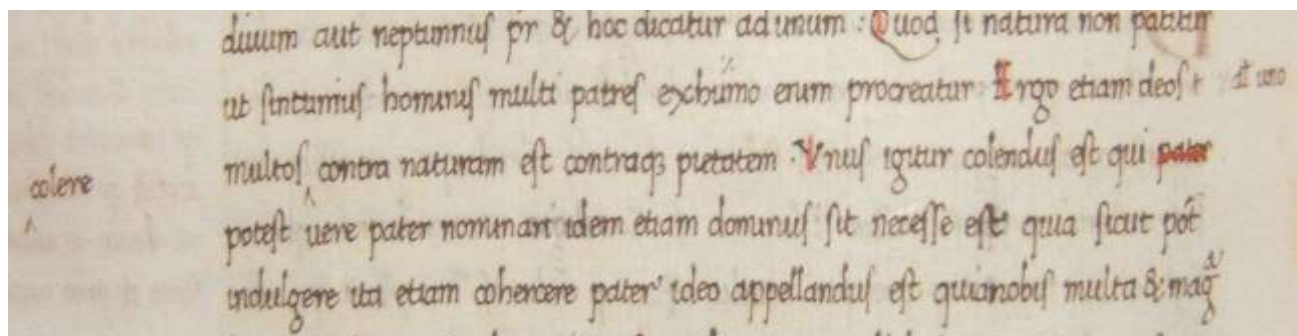 diuum aut neptunnuſ pr̄ & hoc dicatur ad unum : Quod ſi natura non patitur
ut ſint unius hominiſ multi patreſ ex humo enim procreatur. Ergo etiam deoſ
aƚ uno
multoſ contra naturam eſt contraq; pietatem. Vnuſ igitur colenduſ eſt qui pater
colere
poteſt uere pater nominari idem etiam dominuſ ſit neceſſe eſt quia ſicut pōt
indulgere ita etiam cohercere pater ideo appellanduſ eſt quia nobiſ multa & mag